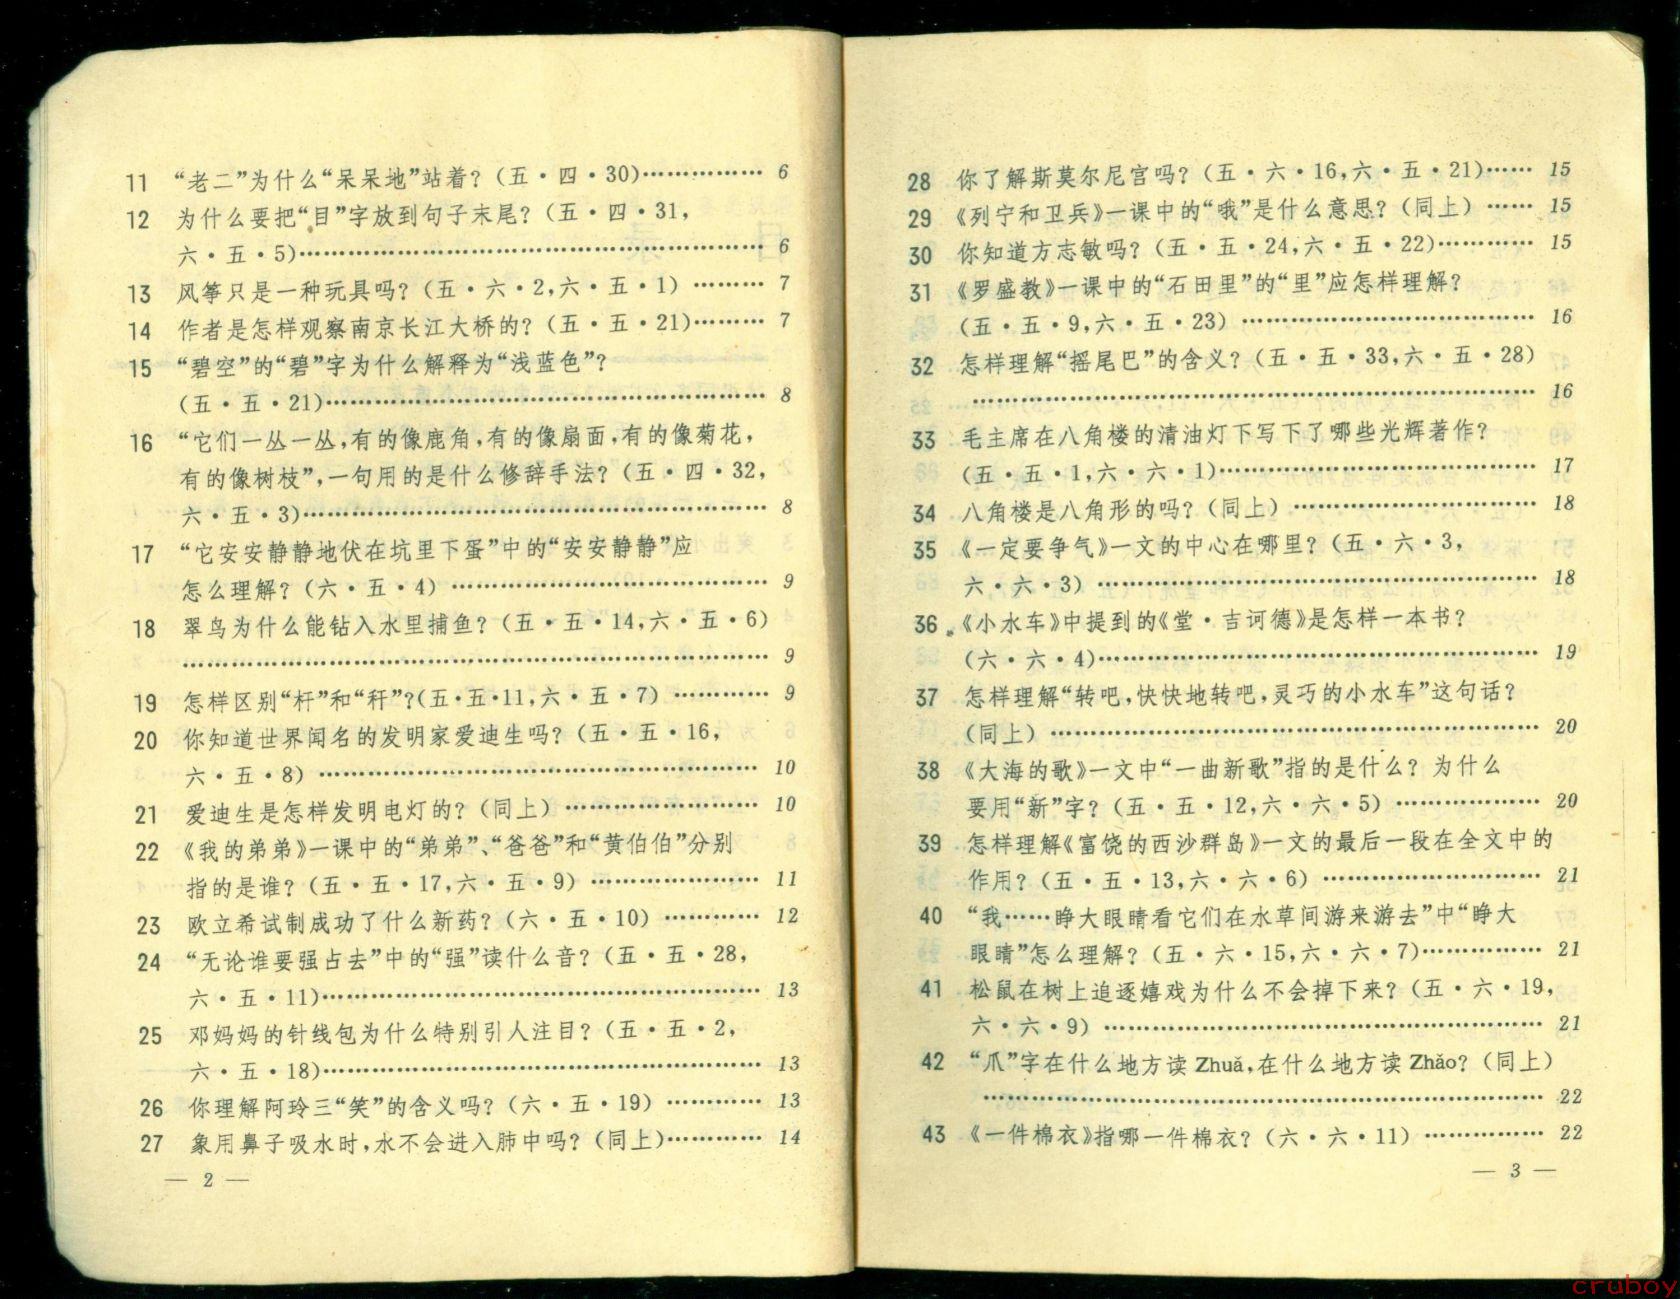 11 “老二”为什么“呆呆地”站着？(五·四·30)…………… 6
12 为什么要把“目”字放到句子末尾？(五·四·31,
六·五·5)………………………………………………… 6
13 风筝只是一种玩具吗？(五·六·2,六·五·1) ……… 7
14 作者是怎样观察南京长江大桥的？(五·五·21)……… 7
15 “碧空”的“碧”字为什么解释为“浅蓝色”？
(五·五·21)……………………………………………… 8
16 “它们一丛一丛,有的像鹿角,有的像扇面,有的像菊花,
有的像树枝”,一句用的是什么修辞手法？(五·四·32,
六·五·3)………………………………………………… 8
17 “它安安静静地伏在坑里下蛋”中的“安安静静”应
怎么理解？(六·五·4) ………………………………… 9
18 翠鸟为什么能钻入水里捕鱼？(五·五·14,六·五·6)
……………………………………………………………… 9
19 怎样区别“杆”和“秆”？(五·五·11,六·五·7) ………… 9
20 你知道世界闻名的发明家爱迪生吗？(五·五·16,
六·五·8) ……………………………………………… 10
21 爱迪生是怎样发明电灯的？(同上) …………………… 10
22 《我的弟弟》一课中的“弟弟”、“爸爸”和“黄伯伯”分别
指的是谁？(五·五·17,六·五·9) ………………… 11
23 欧立希试制成功了什么新药？(六·五·10) ………… 12
24 “无论谁要强占去”中的“强”读什么音？(五·五·28,
六·五·11)……………………………………………… 13
25 邓妈妈的针线包为什么特别引人注目？(五·五·2,
六·五·18)……………………………………………… 13
26 你理解阿玲三“笑”的含义吗？(六·五·19) ………… 13
27 象用鼻子吸水时,水不会进入肺中吗？(同上)………… 14
— 2 —
28 你了解斯莫尔尼宫吗？(五·六·16,六·五·21)…… 15
29 《列宁和卫兵》一课中的“哦”是什么意思？(同上) …… 15
30 你知道方志敏吗？(五·五·24,六·五·22)………… 15
31 《罗盛教》一课中的“石田里”的“里”应怎样理解？
(五·五·9,六·五·23) ……………………………… 16
32 怎样理解“摇尾巴”的含义？(五·五·33,六·五·28)
…………………………………………………………… 16
33 毛主席在八角楼的清油灯下写下了哪些光辉著作？
(五·五·1,六·六·1)………………………………… 17
34 八角楼是八角形的吗？(同上) ………………………… 18
35 《一定要争气》一文的中心在哪里？(五·六·3,
六·六·3) ……………………………………………… 18
36 《小水车》中提到的《堂·吉诃德》是怎样一本书？
(六·六·4)……………………………………………… 19
37 怎样理解“转吧,快快地转吧,灵巧的小水车”这句话？
(同上) …………………………………………………… 20
38 《大海的歌》一文中“一曲新歌”指的是什么？为什么
要用“新”字？(五·五·12,六·六·5) ……………… 20
39 怎样理解《富饶的西沙群岛》一文的最后一段在全文中的
作用？(五·五·13,六·六·6) ……………………… 21
40 “我……睁大眼睛看它们在水草间游来游去”中“睁大
眼睛”怎么理解？(五·六·15,六·六·7)…………… 21
41 松鼠在树上追逐嬉戏为什么不会掉下来？(五·六·19,
六·六·9) ……………………………………………… 21
42 “爪”字在什么地方读 Zhuǎ,在什么地方读 Zhǎo？(同上)
…………………………………………………………… 22
43 《一件棉衣》指哪一件棉衣？(六·六·11) …………… 22
— 3 —
cruboy